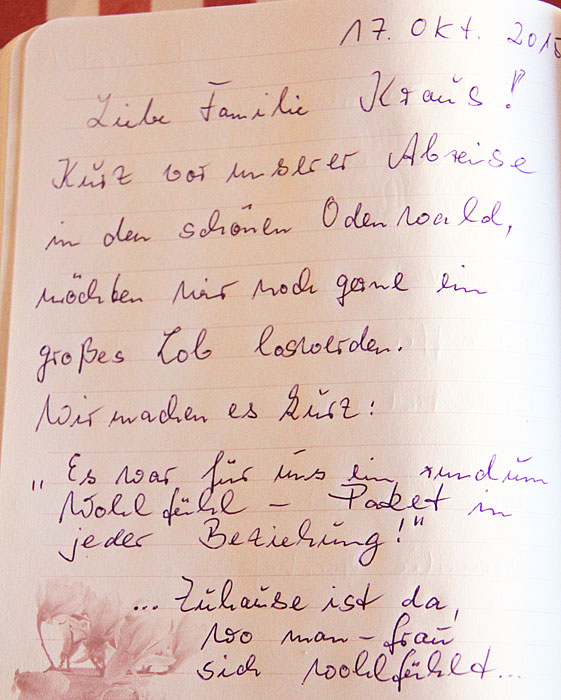 17. Okt. 2015
Liebe Familie Kraus!
Kurz vor unserer Abreise
in den schönen Odenwald,
möchten wir noch gerne ein
großes Lob loswerden.
Wir machen es kurz:
„Es war für uns ein rundum
Wohlfühl - Paket in
jeder Beziehung!"
... Zuhause ist da,
wo man - frau
sich wohlfühlt...